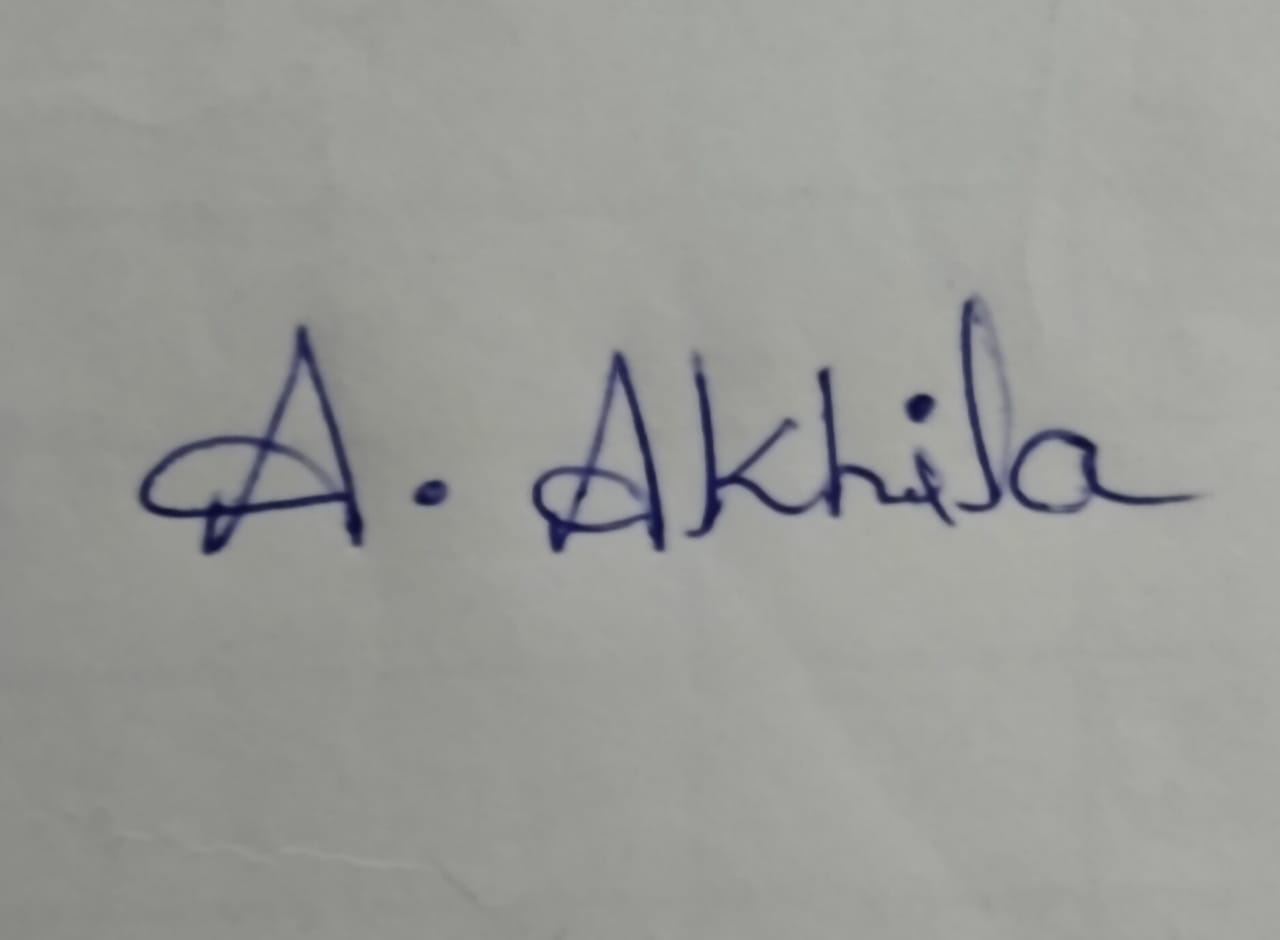 A. Akhila